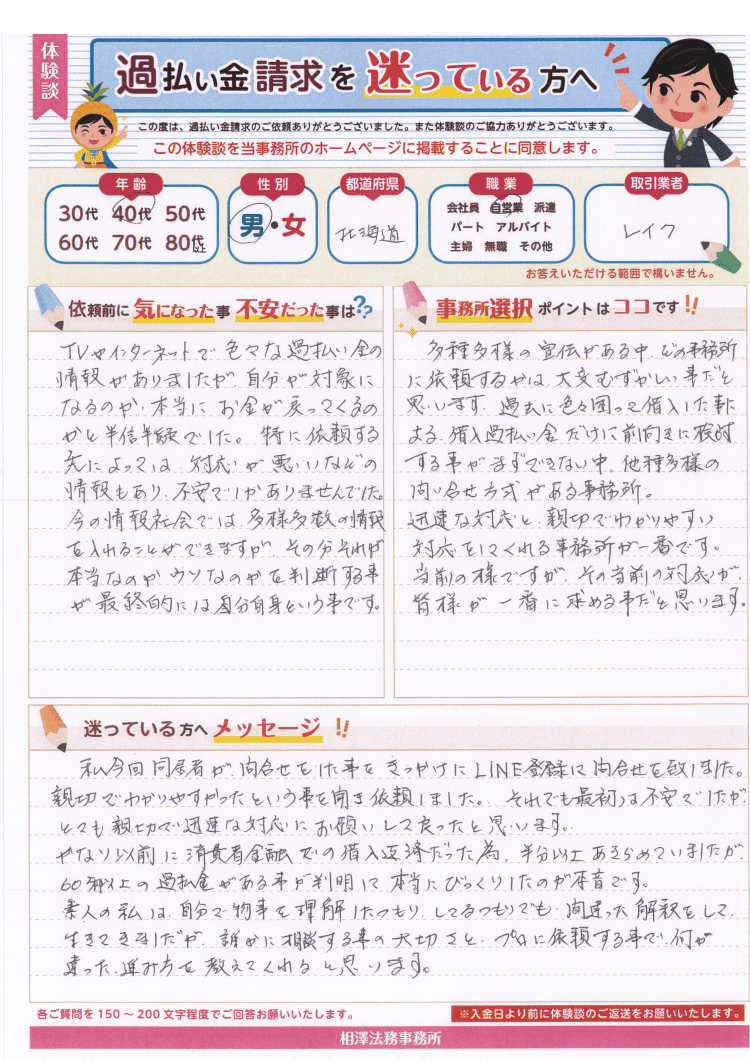 体験談
過払い金請求を迷っている方へ
この度は、過払い金請求のご依頼ありがとうございました。また体験談のご協力ありがとうございます。
この体験談を当事務所のホームページに掲載することに同意します。
年齢
30代 40代 50代
60代 70代 80代以上
性別
男・女
都道府県
北海道
職業
会社員 自営業 派遣
パート アルバイト
主婦 無職 その他
取引業者
レイク
お答えいただける範囲で構いません。
依頼前に気になった事不安だった事は??
TVやインターネットで色々な過払い金の
情報がありましたが、自分が対象に
なるのか・本当にお金が戻ってくるの
かと半信半疑でした。特に依頼する
先によっては、対応が悪いなどの
情報もあり、不安でしかありませんでした。
今の情報社会では、多様多数の情報
を入れることができますが、その分それが
本当なのかウソなのかを判断する事
が最終的には自分自身という事です。
事務所選択ポイントはココです!!
多種多様の宣伝がある中、どの事務所
に依頼するかは、大変むずかしい事だと
思います。過去に色々困って借入した事に
よる、借入過払い金だけに前向きに検討
する事がまずできない中、他種多様の
問い合せ方式がある事務所。
迅速な対応と、親切でわかりやすい
対応をしてくれる事務所が一番です。
当前の様ですが、その当前の対応が、
皆様が一番に求める事だと思います。
迷っている方へメッセージ!!
私今回同居者が、問合せをした事をきっかけにLINE登録に問合せを致しました。
親切でわかりやすかったという事を聞き依頼しました。それでも最初は不安でしたが
とても親切で迅速な対応にお願いして良ったと思います。
かなり以前に消費者金融での借入返済だった為、半分以上あきらめていましたが、
60万以上の過払金がある事が判明して本当にびっくりしたのが本音です。
素人の私は、自分で物事を理解したつもり、してるつもりでも、間違った解釈をして、
生きてきましたが、誰かに相談する事の大切さと、プロに依頼する事で、何が
違った、進み方を教えてくれると思います。
各ご質問を150〜200文字程度でご回答お願いいたします。
※入金日より前に体験談のご返送をお願いいたします。
相澤法務事務所